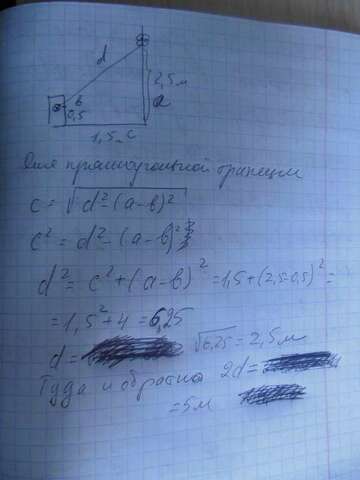 d
2,5 м
a
в
0,5
1,5 м c
Для прямоугольной трапеции
c = √d²-(a-в)²
c² = d² - (a-в)²
d² = c² + (a-в)² = 1,5 + (2,5-0,5)² =
= 1,5² + 4 = 6,25
d = √6,25 = 2,5 м
Туда и обратно 2d =
= 5 м